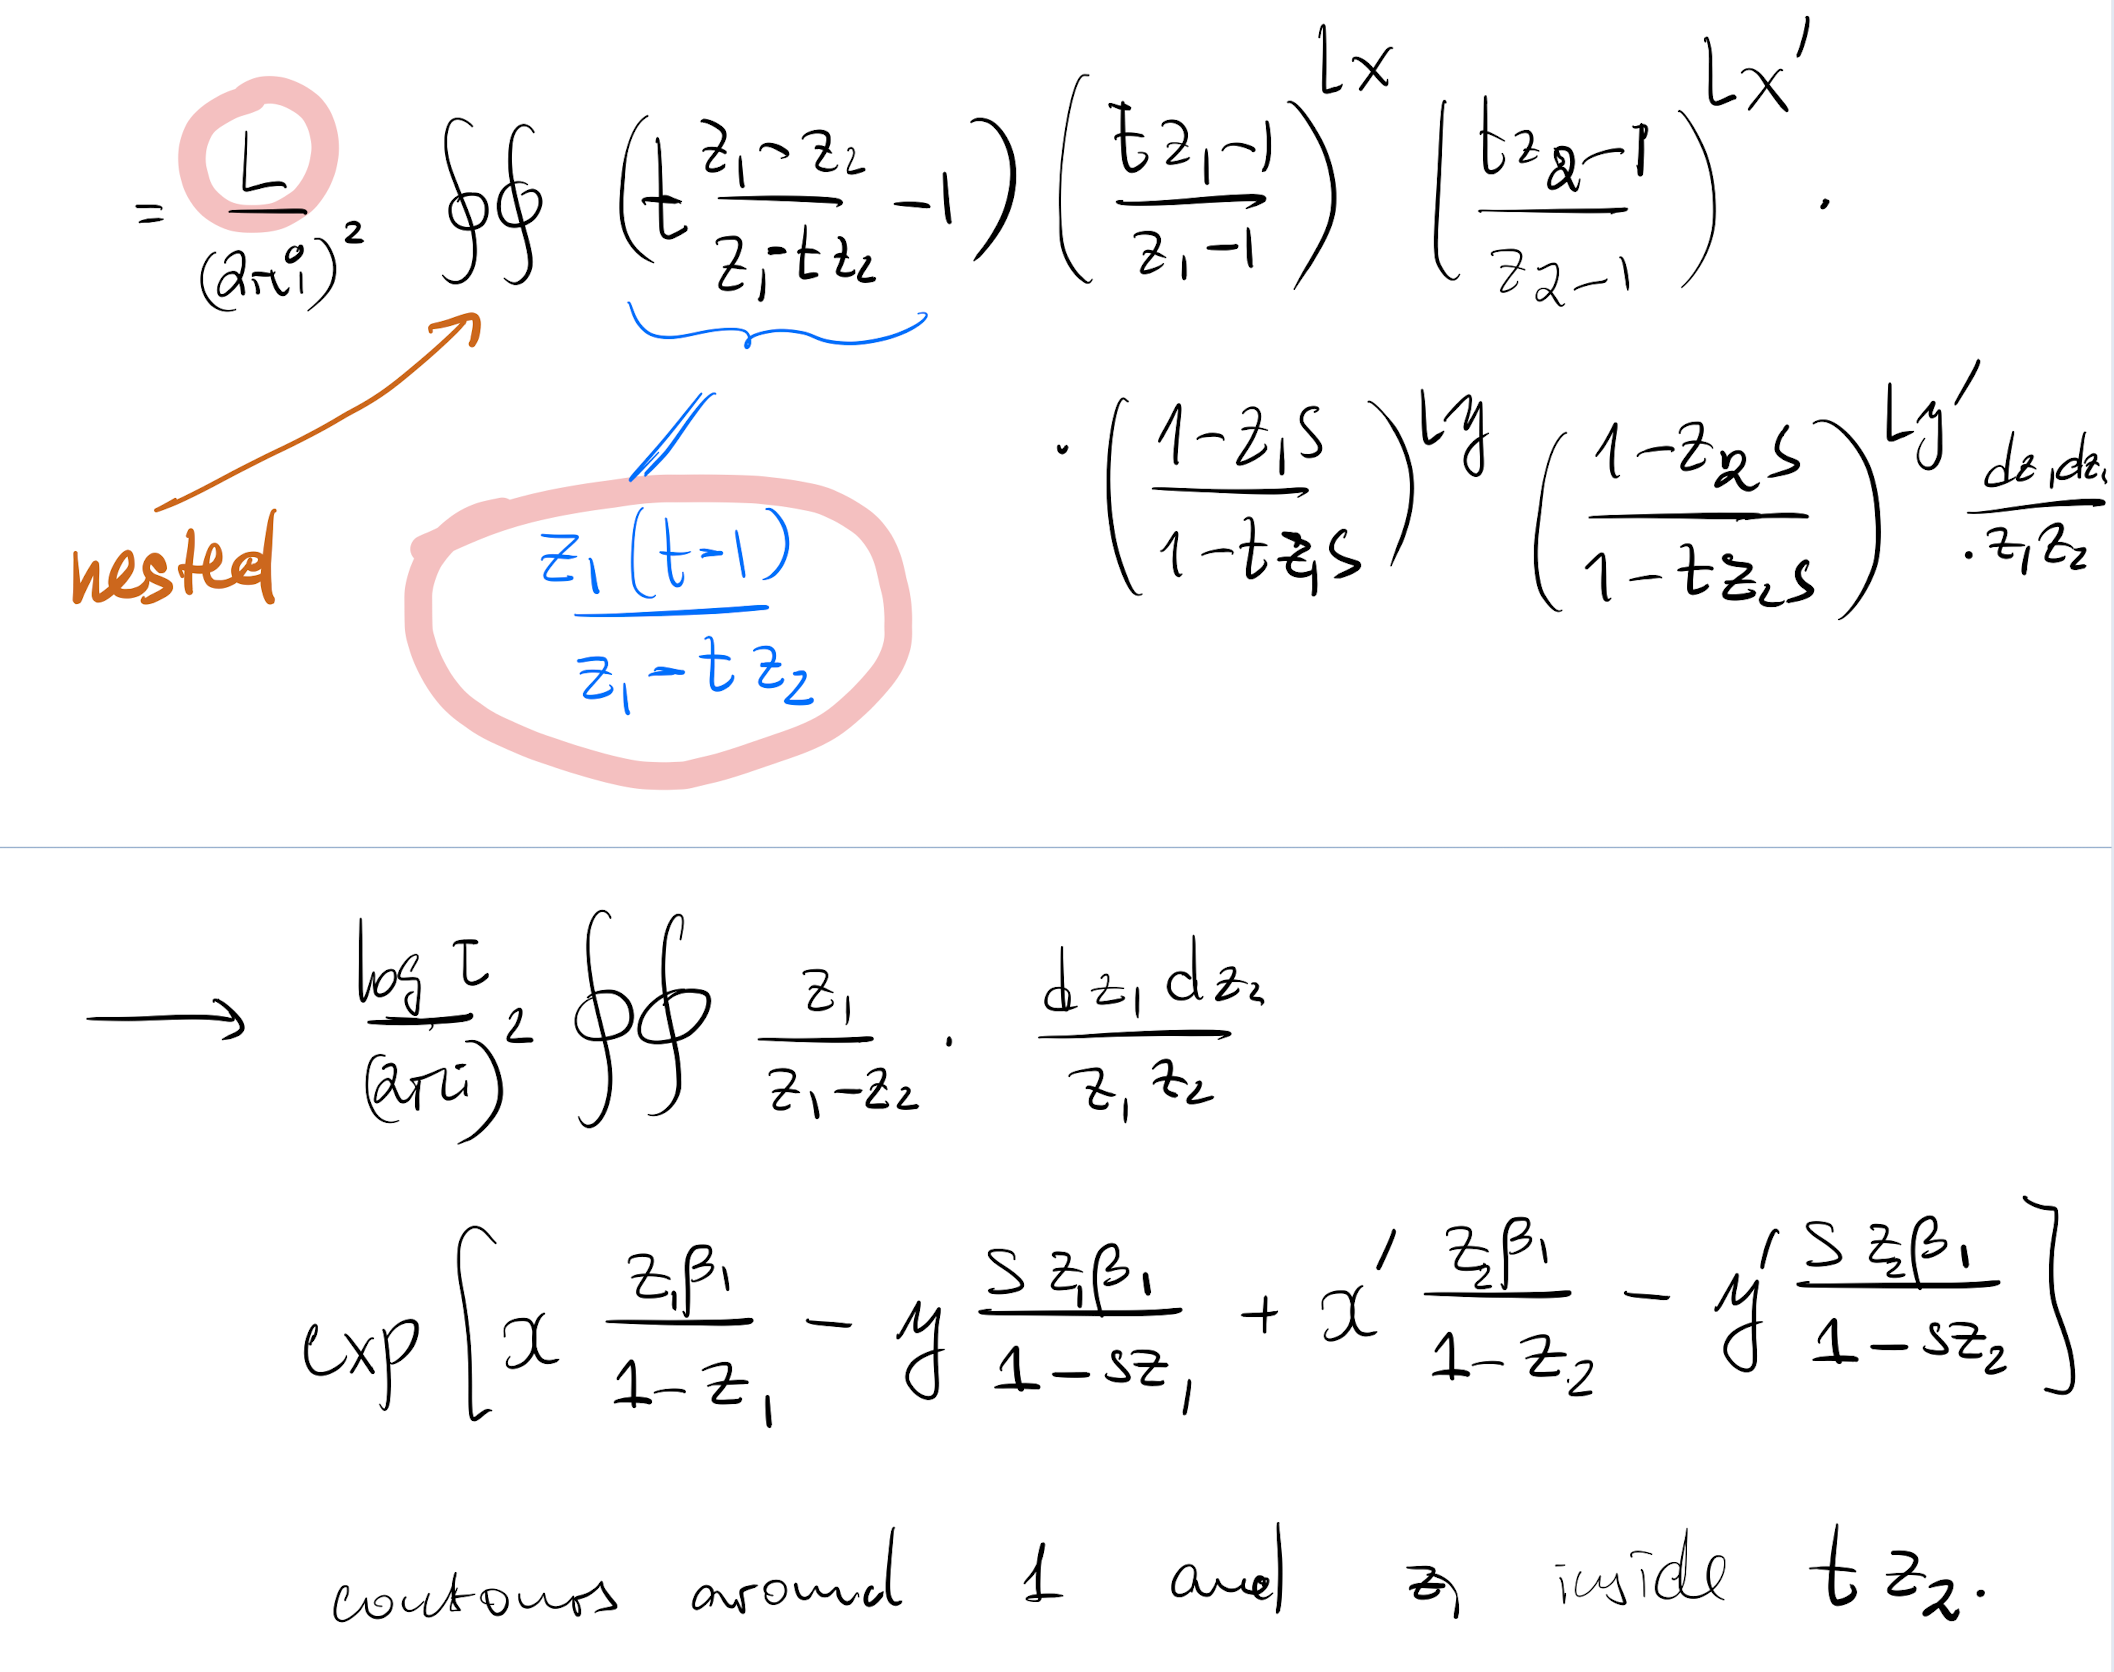 = L/(2πi)² ∮∮ (t (z₁-z₂)/(z₁-tz₂) -1) ((tz₁-1)/(z₁-1))^{Lx} ((tz₂-1)/(z₂-1))^{Lx'} ·
· ((1-z₁s)/(1-tz₁s))^{Ly} ((1-z₂s)/(1-tz₂s))^{Ly'} dz₁dz₂/·z₁z₂
nested
z₁(t-1)/(z₁-tz₂)
⟶ log τ/(2πi)² ∮∮ z₁/(z₁-z₂) · dz₁dz₂/z₁z₂
exp[x z₁β₁/(1-z₁) - y sz₁β₁/(1-sz₁) + x' z₂β₁/(1-z₂) - y' sz₂β₁/(1-sz₂)]
contours around 1 and z₁ inside tz₂.